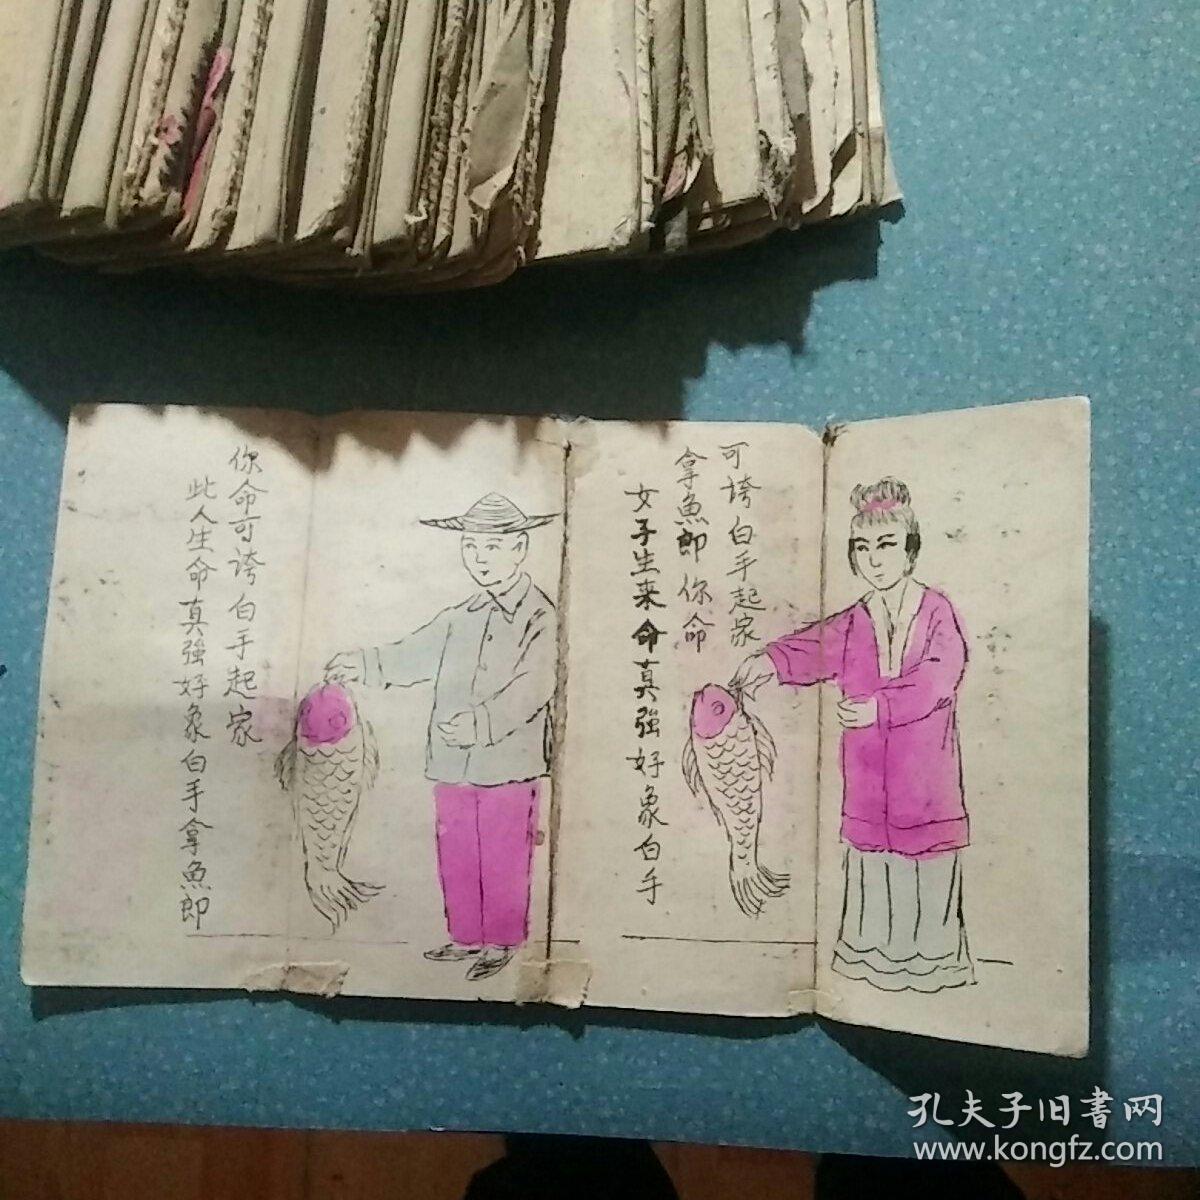 可誇白手起家
拿魚郎你命
女子生来命真強好象白手
你命可誇白手起家
此人生命真強好象白手拿魚郎
孔夫子旧書网
www.kongfz.com